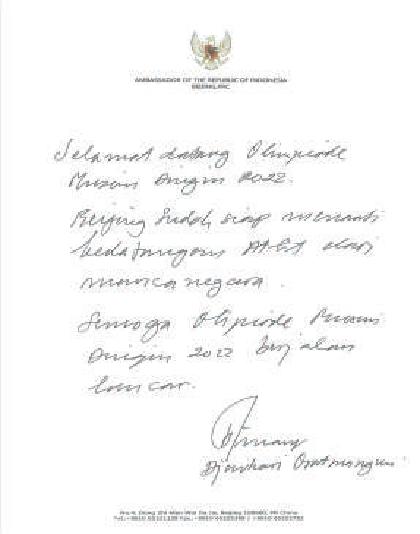 AMBASSADOR OF THE REPUBLIC OF INDONESIA
BEIJING, PRC
Selamat datang Olimpiade
Musim Dingin 2022.
Beijing sudah siap menanti
kedatangan atlet dari
manca negara.
Semoga Olipiade Musim
Dingin 2022 berjalan
lancar.
Djauhari Oratmangun